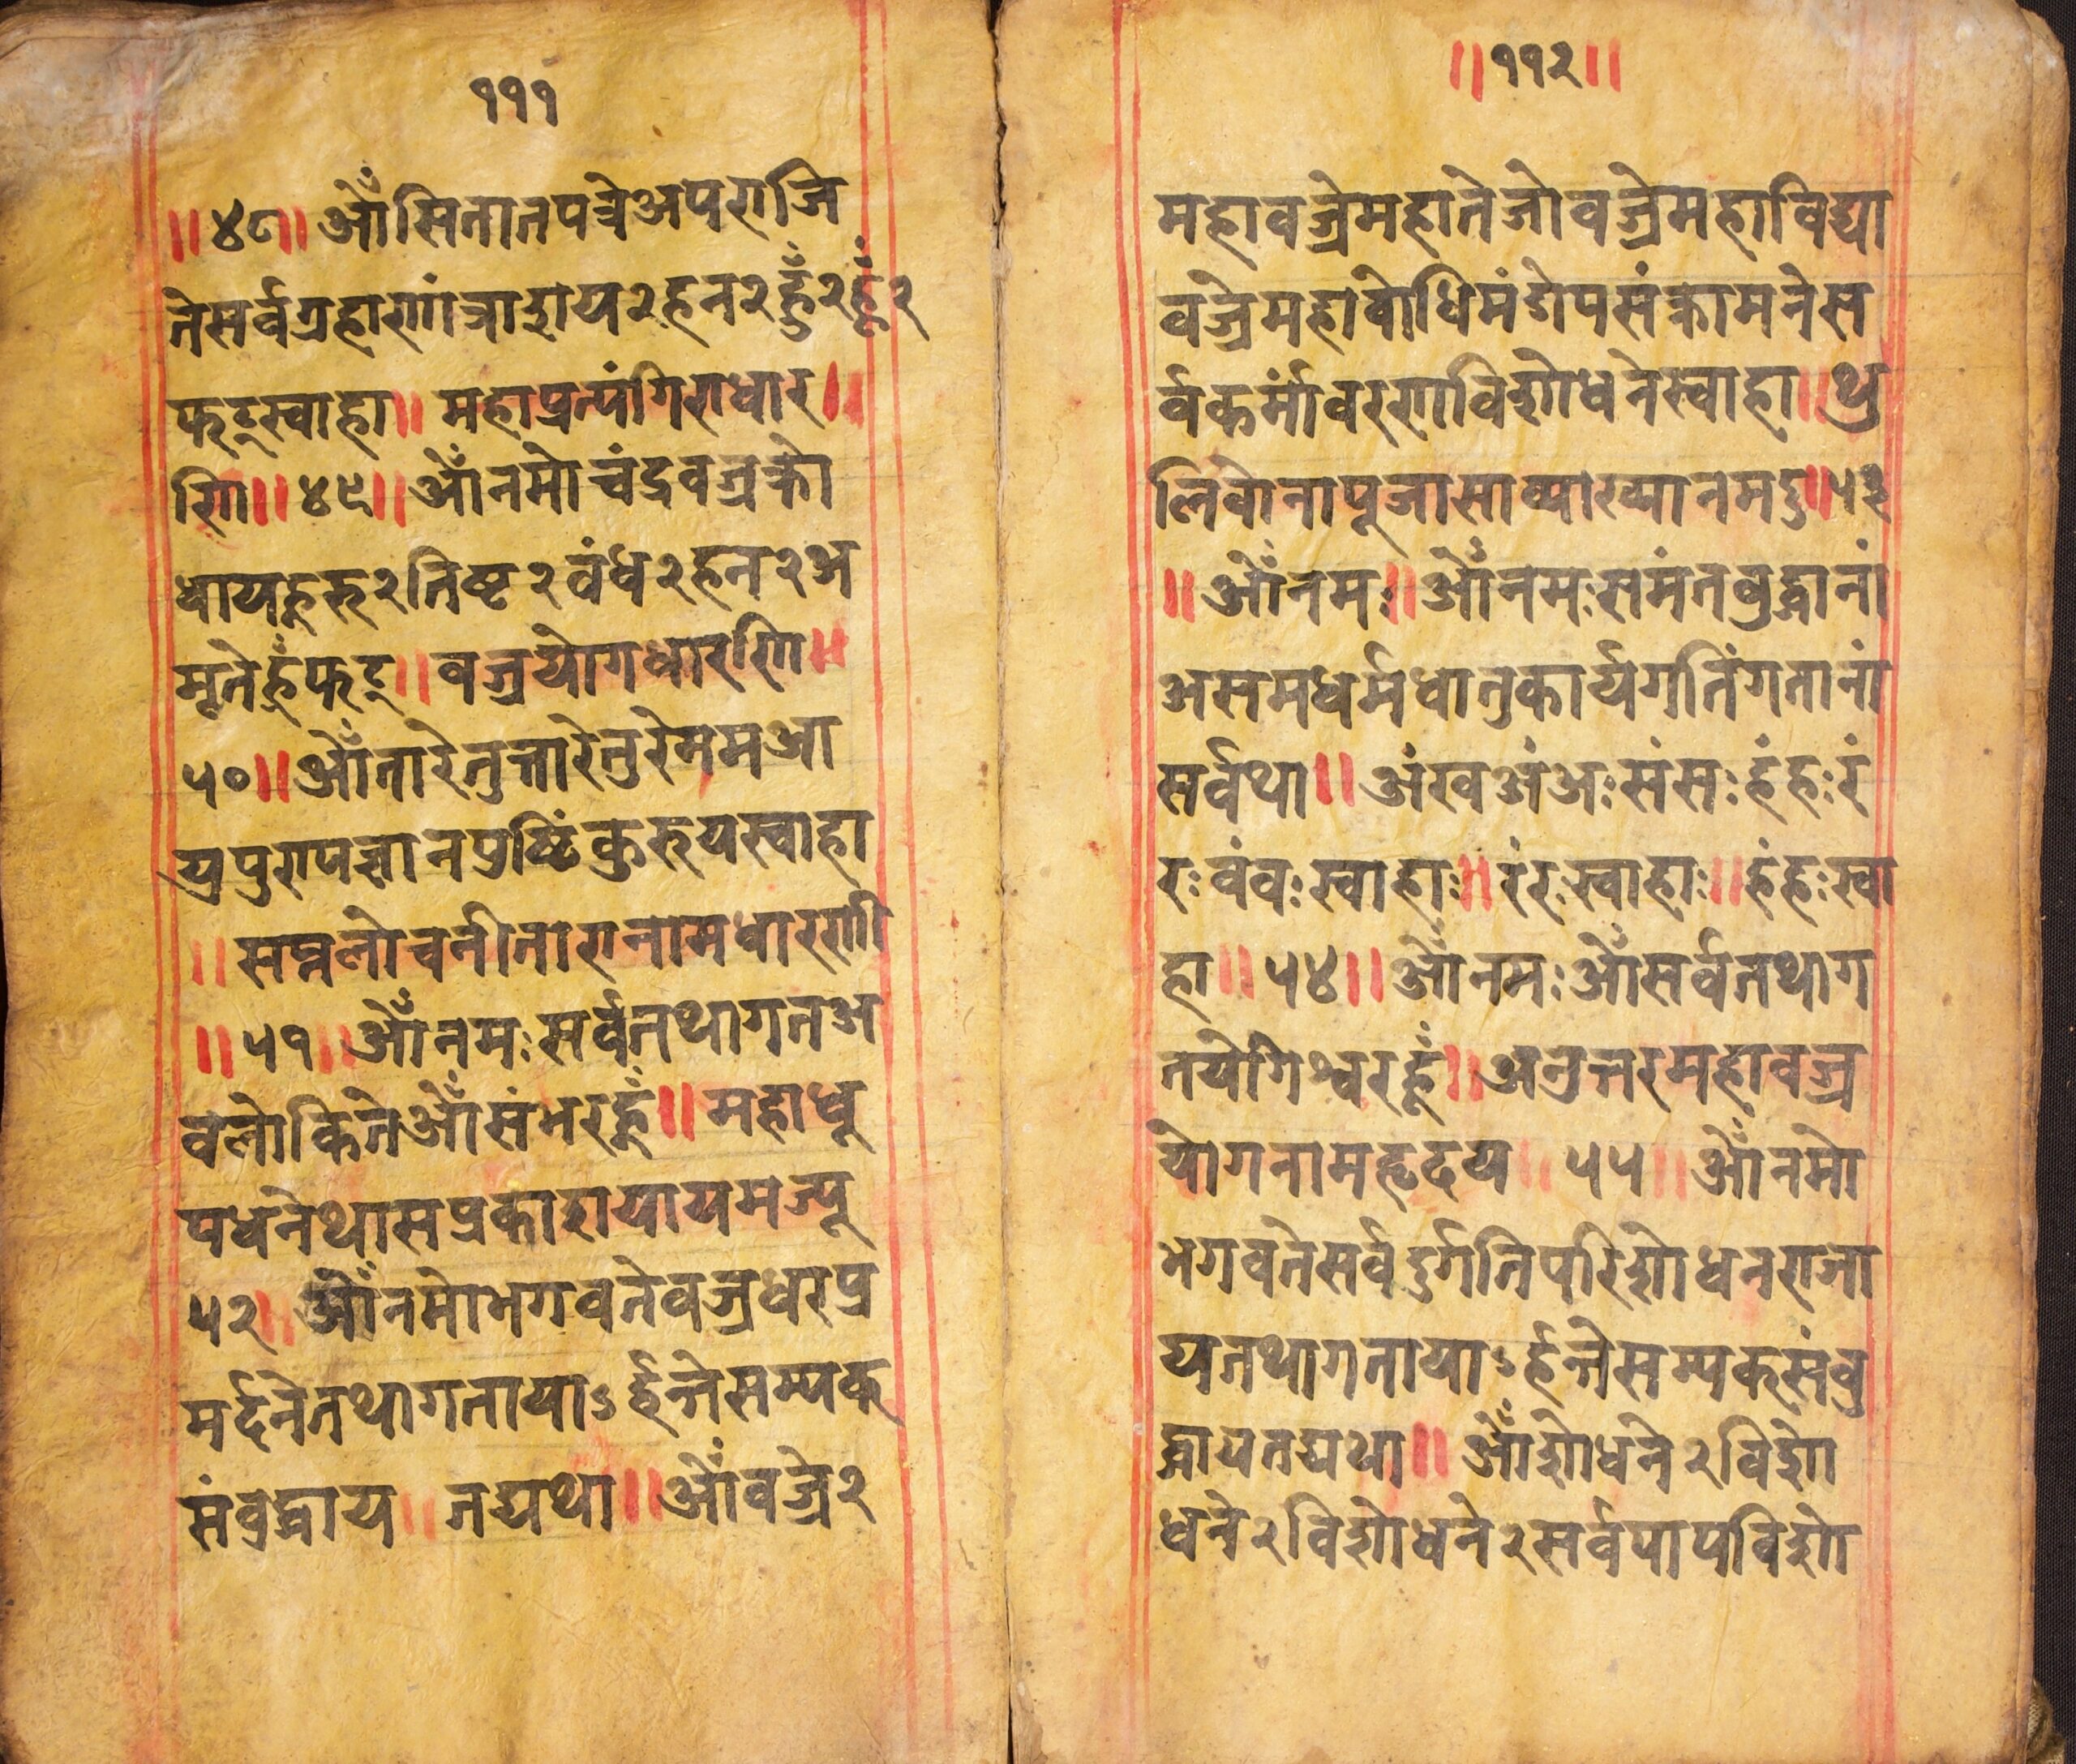 १११
॥४८॥ओँसितातपत्रेअपराजि
तेसर्वग्रहाणांत्राशय२हन२हुँ२हूँ२
फट्स्वाहा॥महाप्रत्यंगिराधार॥
णि॥४९॥ओँनमोचंद्रवज्रक्रो
धायहूरु२तिष्ट२वंध२हन२अ
मृतेहुँफट्॥वज्रयोगधारणि॥
५०॥ओँतारेतुत्तारेतुरेममआ
युपुराणज्ञानप्रष्टिंकुरुयस्वाहा
॥सप्तलोचनीतारानामधारणी
॥५१॥ओँनमःसर्वतथागतअ
वलोकितेओँसंभरहूँ॥महाधू
पधनेथासप्रकाशयायमज्यू
५२॥ओँनमोभगवतेवज्रधरप्र
मर्दनेतथागतायाऽर्हन्तेसम्यक्
संवुद्धाय॥तद्यथा॥ओँवज्रे२
॥११२॥
महावज्रेमहातेजोवज्रेमहाविद्या
वज्रेमहावोधिमंडोपसंक्रामनेस
र्वकर्मांवरणाविशोधनेस्वाहा॥थु
लिवोनापूजासाव्याख्यानमदु॥५३
॥ओँनमः॥ओँनमःसमंतवुद्धानां
असमधर्मधातुकार्यगतिंगतानां
सर्वथा॥अंखअंअःसंसःहंहःरं
रःवंवःस्वाहाः॥रंरःस्वाहाः॥हंहःस्वा
हा॥५४॥ओँनमःओँसर्वतथाग
तयेगिश्वरहूँ॥अनुत्तरमहावज्र
योगनामहृदय॥५५॥ओँनमो
भगवतेसर्वदुर्गतिपरिशोधनराजा
यतथागतायाऽर्हन्तेसम्यक्संवु
द्धायतद्यथा॥ओँशोधने२विशो
धने२विशोधने२सर्वपापविशो